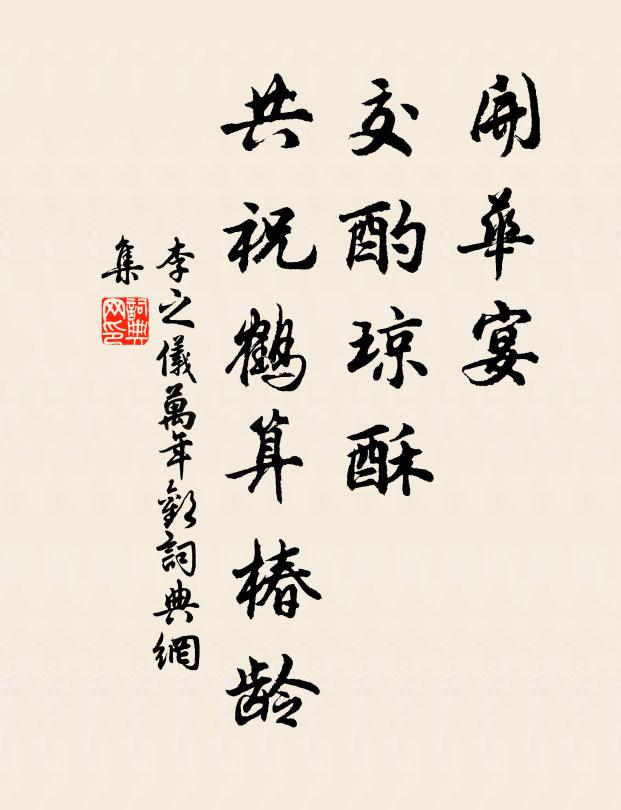 開華宴
交酌琼酥
共祝鹤算椿龄
李之儀萬年歡詞典網
集
詞典网印